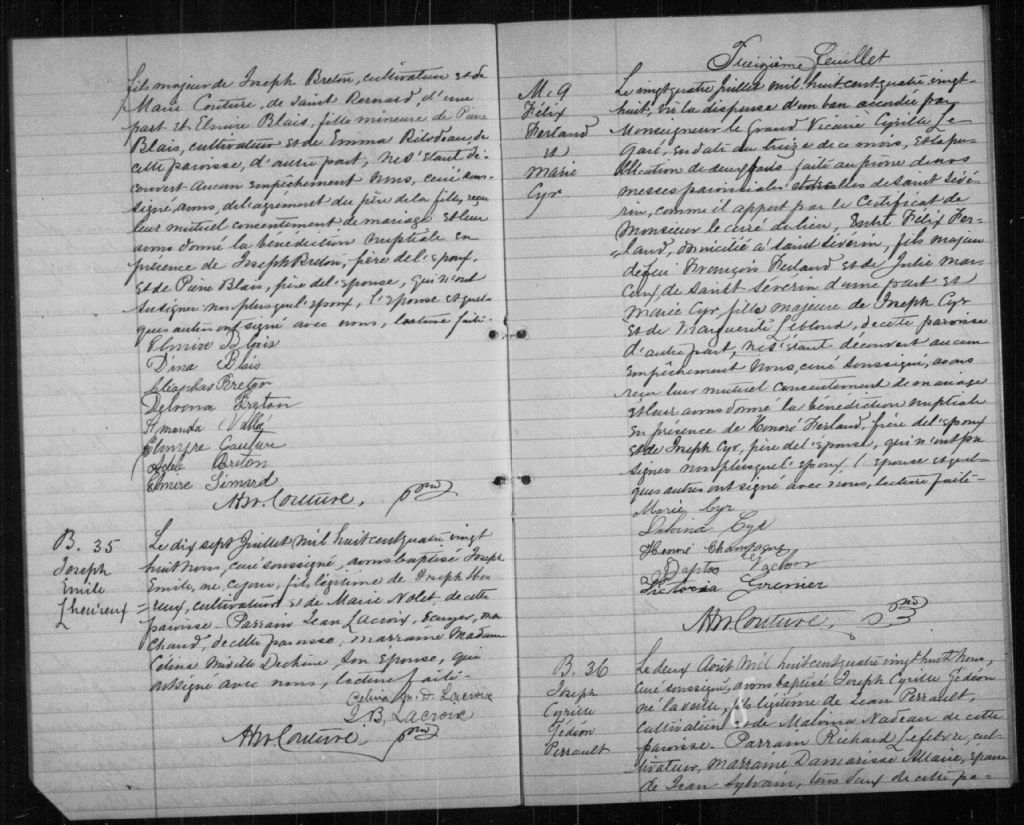 fils majeur de Joseph Breton, cultivateur et de
Marie Couture, de Saint Bernard, d'une
part et Elmire Blais, fille mineure de Pierre
Blais, cultivateur et de Emma Bilodeau, de
cette paroisse, d'autre part, ne s'étant dé-
couvert aucun empêchement Nous, curé sous-
signé, avons, del'agrement du père de la fille, reçu
leur mutuel consentement de mariage et leur
avons donné la bénédiction nuptiale en
présence de Joseph Breton, père de l'epoux,
et de Pierre Blais, père del'épouse, qui n'ont
su signer non plus que l'epoux, l'épouse et quel-
ques autres ont signé avec nous, lecture faite-
Elmire Blais
Dina Blais
Cléophas Breton
Delvena Breton
Amanda Vallée
Elmire Couture
Adèle Breton
Elmire Simard
Couture, ptre
B. 35
Joseph
Emile
Lheureux
Le dix sept Juillet mil huit cent quatre vingt
huit nous, curé soussigné, avons baptisé Joseph
Emile, né ce jour, fils légitime de Joseph Lheu
=reux, cultivateur et de Marie Nolet, de cette
paroisse- Parrain Jean Lacroix, Ecuyer, mar
chand, de cette paroisse, marraine Madame
Célina Dechêne, son épouse, qui
ont signé avec nous, lecture faite-
Célina D. Lacroix
J. B. Lacroix
Couture, ptre
Treizième feuillet
M. 9
Félix
Ferland
et
Marie
Cyr
Le vingt quatre Juillet mil huit cent quatre vingt-
huit, vu la dispense d'un ban accordée par
Monseigneur le Grand Vicaire Cyrille Le-
garé, en date du treize de ce mois, et la pu-
blication de deux faite au prône de nos
messes paroissiales et de celles de Saint Sévé-
rin, comme il appert par le Certificat de
Monsieur le curé du lieu, Entre Félix Fer-
land, domicilié à Saint Sévérin, fils majeur
de feu François Ferland et de Julie Mar-
coux de Saint Séverin d'une part et
Marie Cyr, fille majeure de Joseph Cyr
et de Marguerite Leblond, de cette paroisse
d'autre part, ne s'étant découvert aucun
empêchement Nous, curé soussigné, avons
reçu leur mutuel consentement de mariage
et leur avons donné la bénédiction nuptiale
en présence de Honoré Ferland, frère del'epoux
et de Joseph Cyr, père del'épouse, qui n'ont pu
signer non plus que l'epoux, l'epouse et quel-
ques autres ont signé avec nous, lecture faite-
Marie Cyr
Cyr
Honoré Champagne
Vachon
Victoria Grenier
Couture, ptre
B. 36
Joseph
Cyrille
Gédéon
Perrault
Le deux Août mil huit cent quatre vingt huit nous,
curé soussigné, avons baptisé Joseph Cyrille Gédéon
né la veille, fils légitime de Jean Perrault,
cultivateur et de Malvina Nadeau de cette
paroisse- Parrain Richard Lefebvre, cul-
tivateur, marraine Damarisse Allaire, épouse
de Jean Sylvain, tous deux de cette pa-